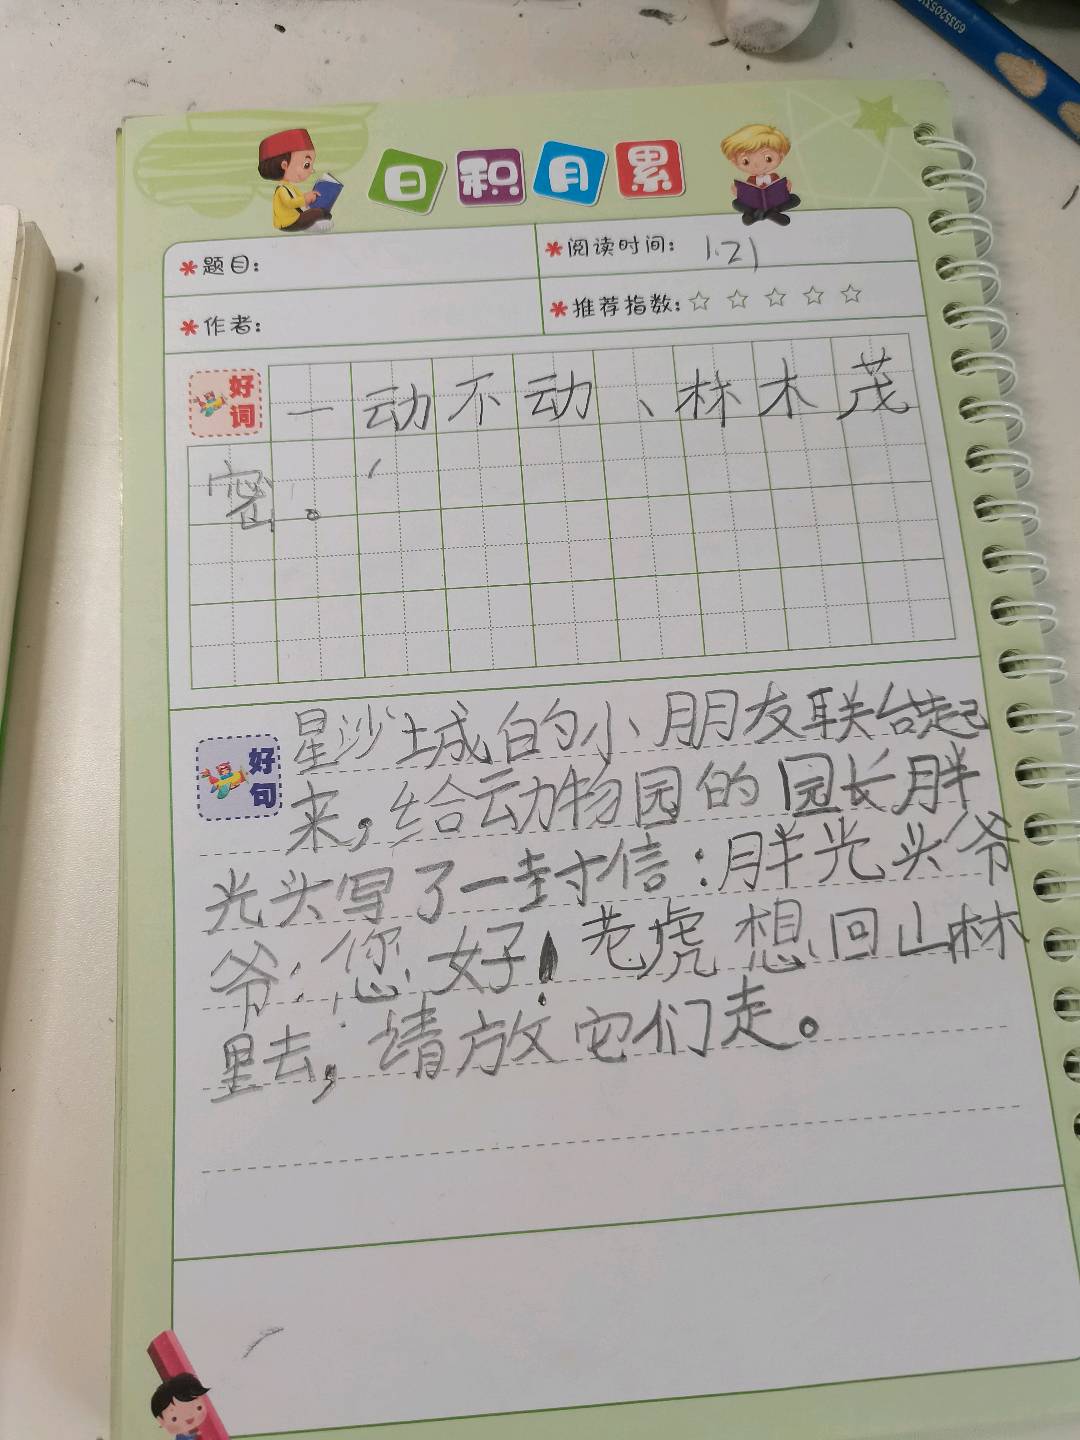 日积月累
*题目：
*阅读时间： 1.21
*作者：
*推荐指数：☆☆☆☆☆
好词
一动不动、林木茂
密。
好句
星沙城的小朋友联合起
来，给动物园的园长胖
光头写了一封信：胖光头爷
爷：您好！老虎想回山林
里去，请放它们走。